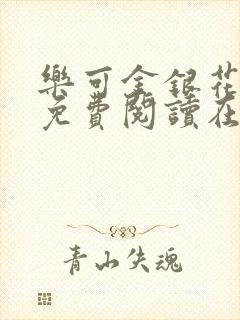 樂可金銀花
免費閱讀在
青山失魂